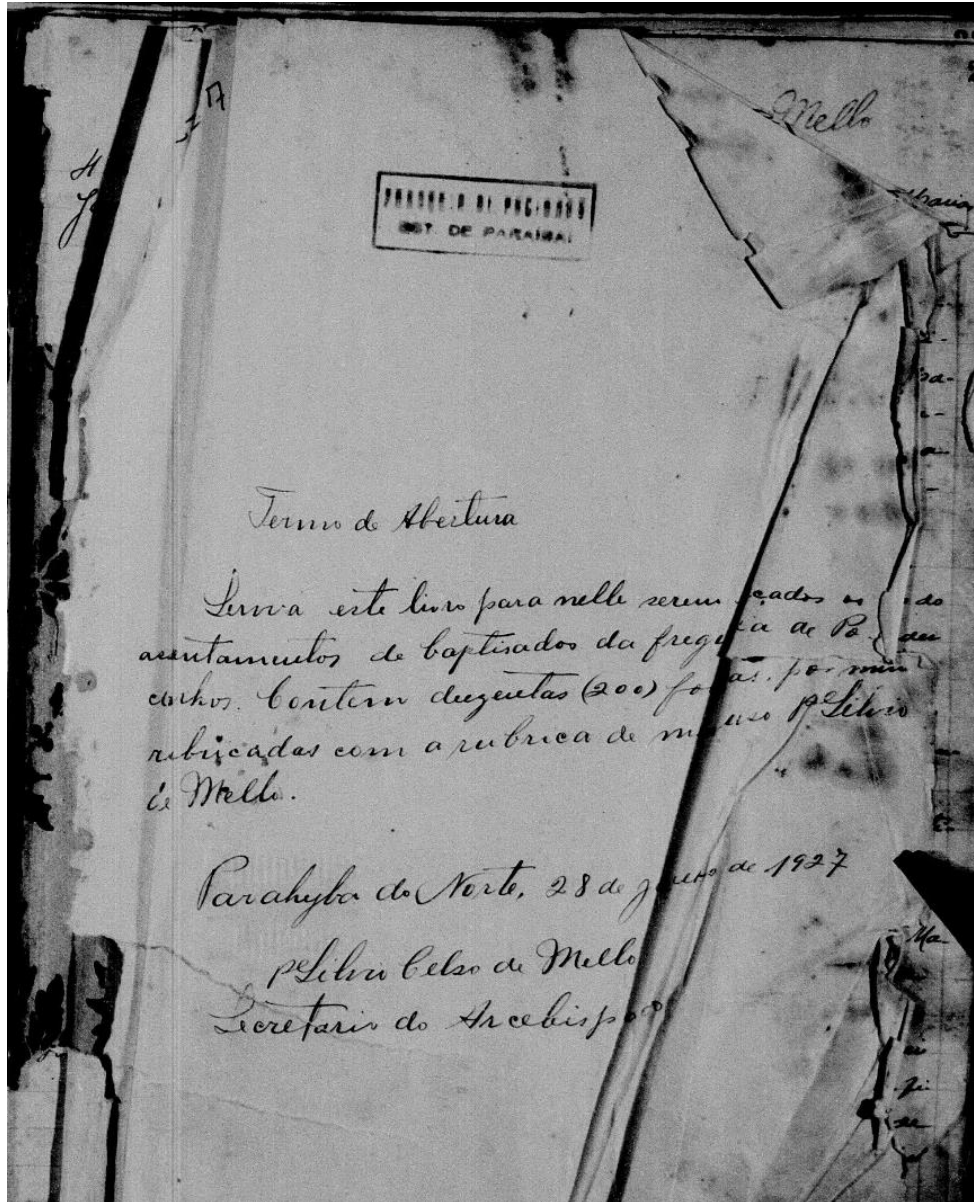 Mello
EST. DE PARAÍBA
Maria
Termo de Abertura
Servirá este livro para nelle serem çados os do
assentamentos de baptisados da freguezia de Po-
cinhos. Contem duzentas (200) por mim
rubricadas com a rubrica de meu uso Pe Silvio
de Mello.
Parahyba do Norte, 28 de de 1927
Pe Silvio Celso de Mello
Secretario do Arcebispado
Ma-